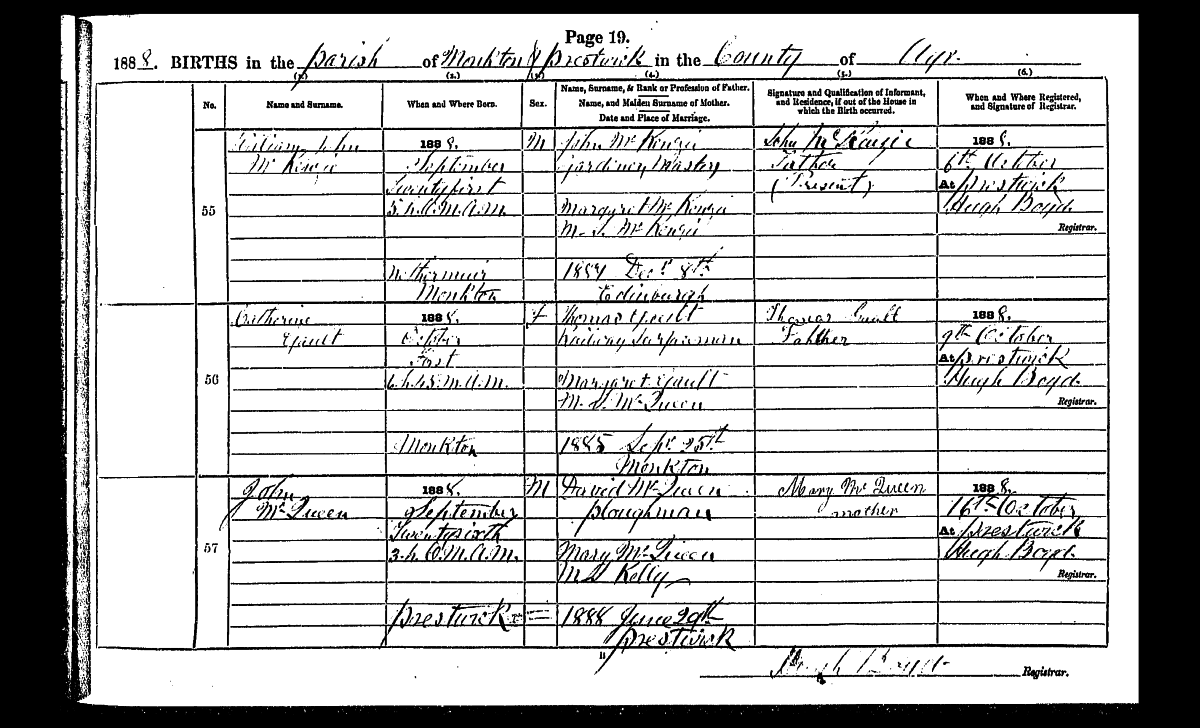 Page 19.
1888. BIRTHS in the parish of Monkton & Prestwick in the County of Ayr.
(1.) (2.) (3.) (4.) (5.) (6.)
No.
Name and Surname.
When and Where Born.
Sex.
Name, Surname, & Rank or Profession of Father.
Name, and Maiden Surname of Mother.
Date and Place of Marriage.
Signature and Qualification of Informant,
and Residence, if out of the House in
which the Birth occurred.
When and Where Registered,
and Signature of Registrar.
55
William John
McKenzie
1888.
September
Twentyfirst
5 h. 0 M. A.M.
Nethermuir
Monkton
M
John McKenzie
Gardener Master
Margaret McKenzie
M. S. McKenzie
1884 Decr 8th
Edinburgh
John McKenzie
Father
(Present)
1888.
6th October
At Prestwick
Hugh Boyd
Registrar.
56
Catherine
Gault
1888.
October
First
6 h. 45 M. A.M.
Monkton
F
Thomas Gault
Railway Surfaceman
Margaret Gault
M. S. McQueen
1885 Sepr 25th
Monkton
Thomas Gault
Father
1888.
9th October
At Prestwick
Hugh Boyd
Registrar.
57
John
McQueen
1888.
September
Twentysixth
3 h. 0 M. A.M.
Prestwick
M
David McQueen
Ploughman
Mary McQueen
M S Kelly
1888 June 29th
Prestwick
Mary McQueen
mother
1888.
16th October
At Prestwick
Hugh Boyd
Registrar.
Hugh Boyd Registrar.